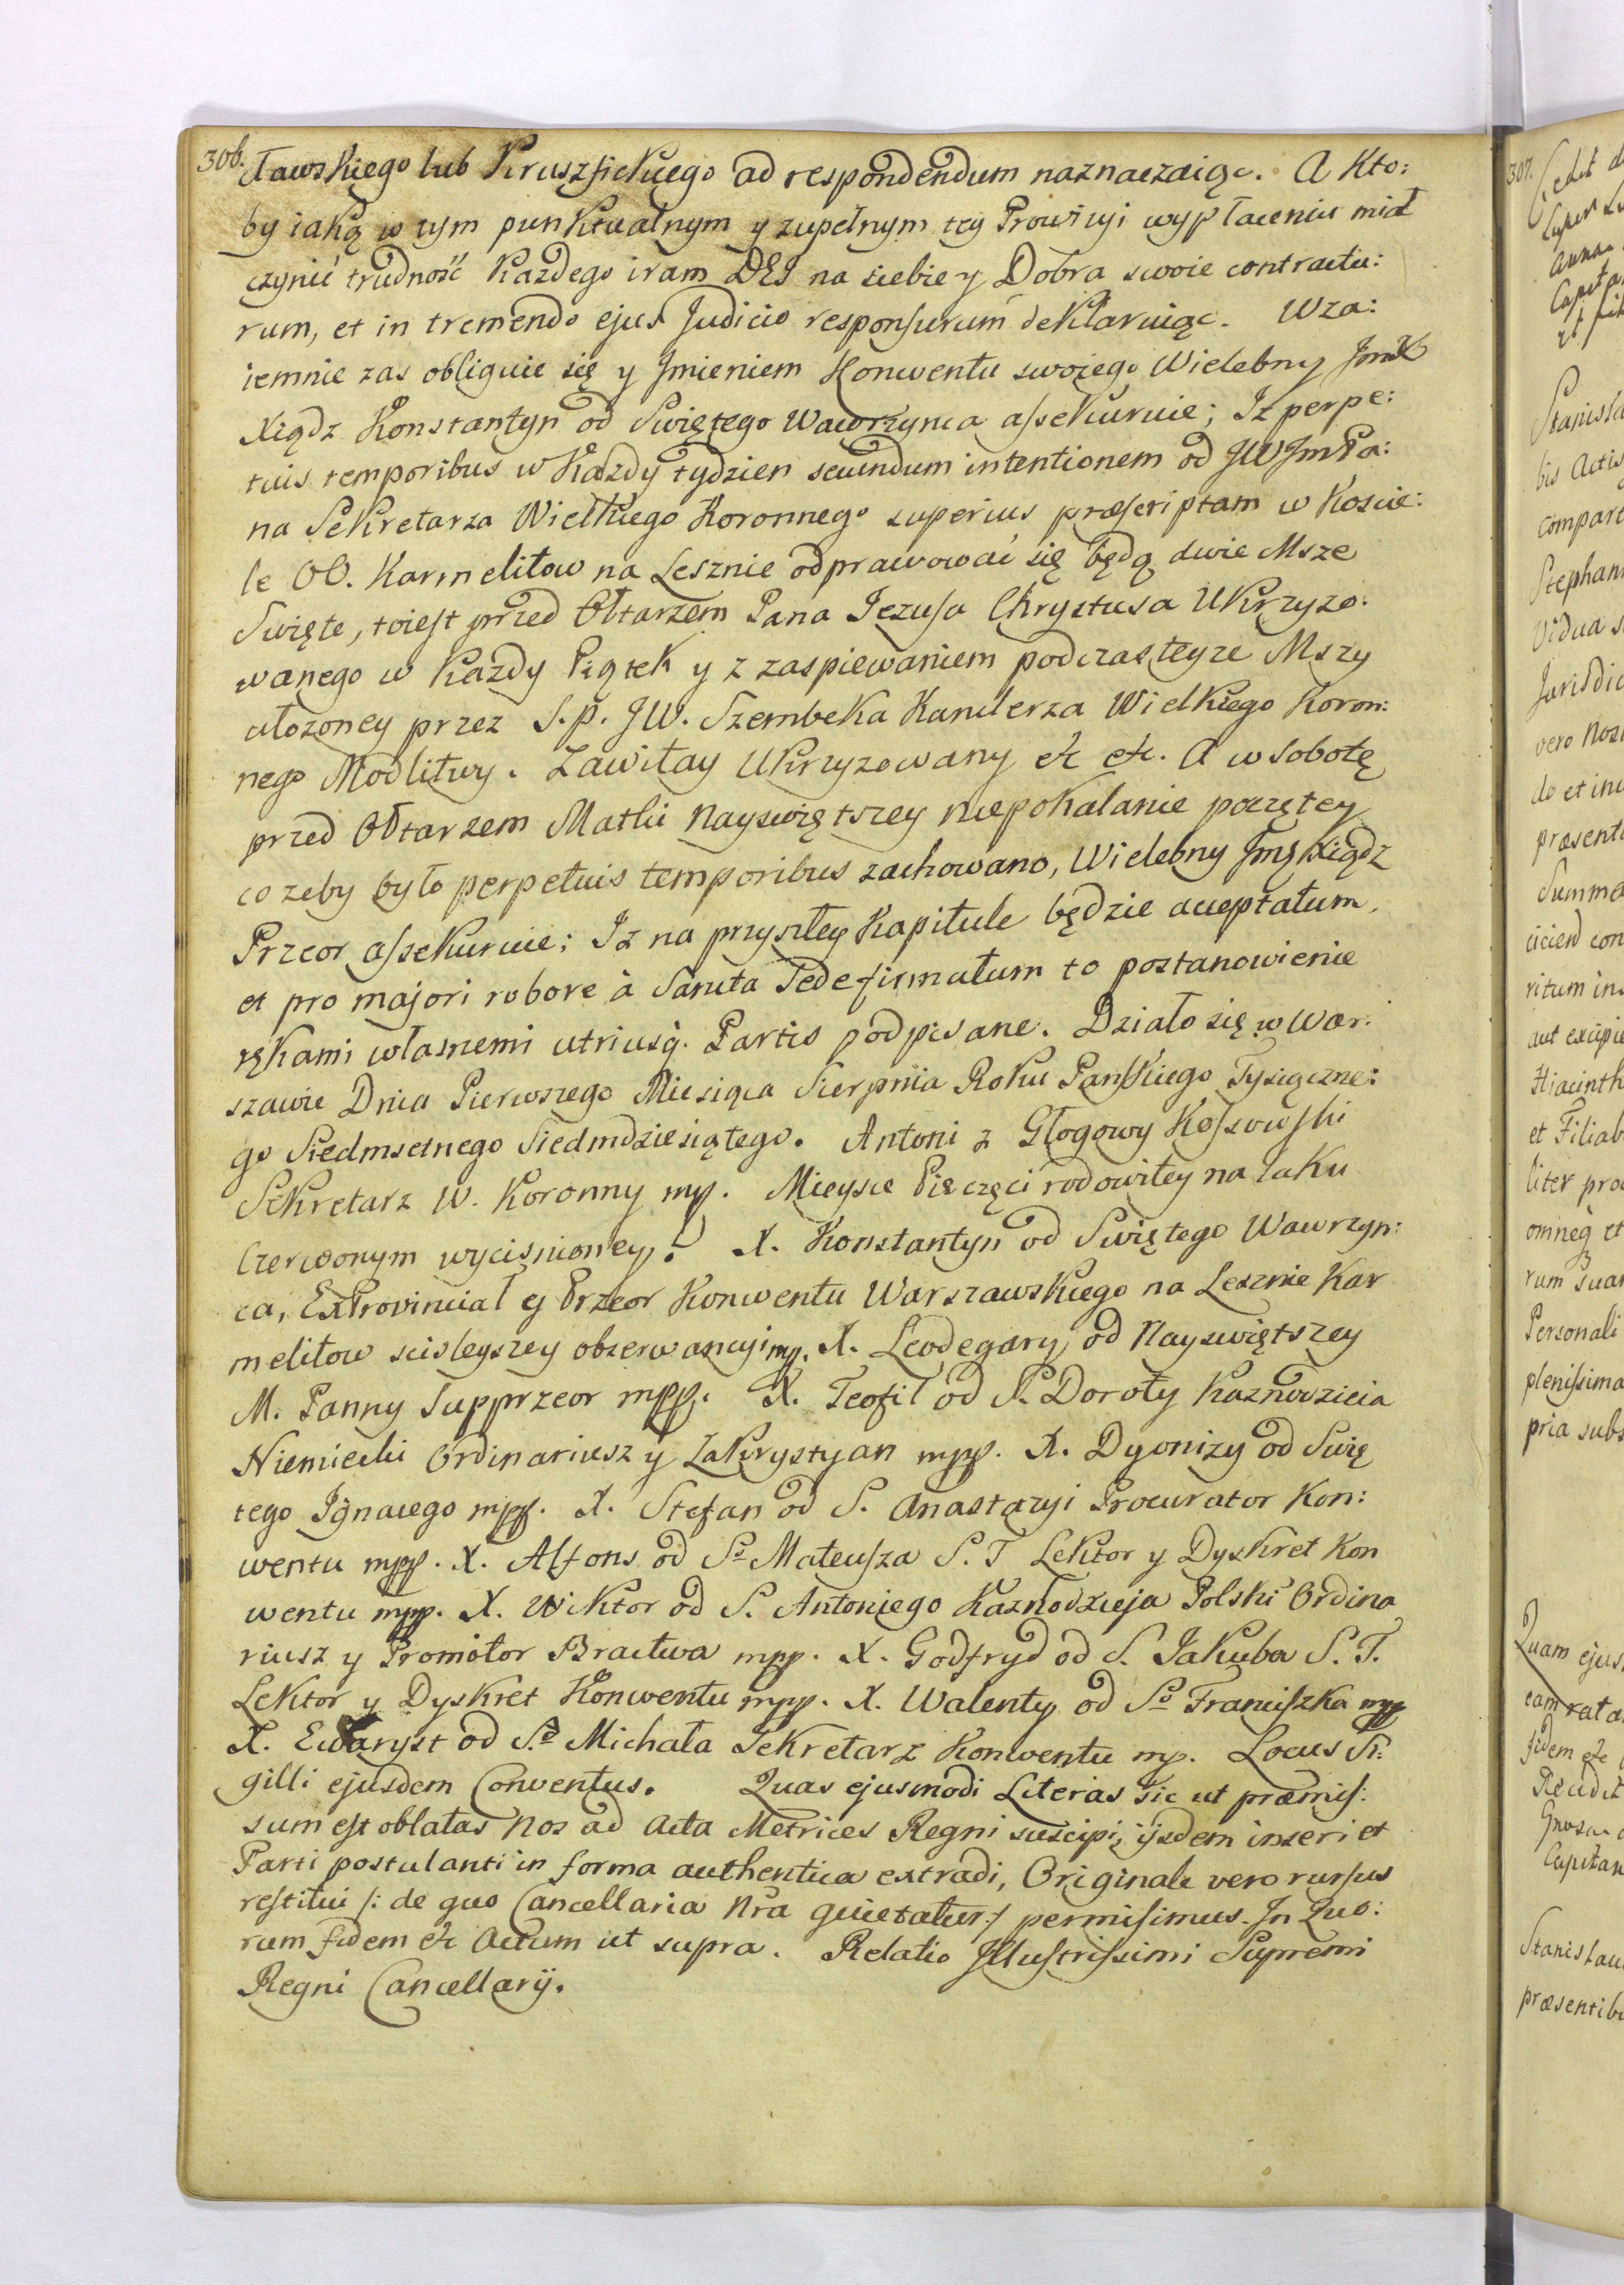 306.
ławskiego lub Kruszfickiego ad respondendum naznaczaiąc. A kto:
by iaką w tym punktualnym y zupełnym tey Prowizyi wypłaceniu miał
czynić trudność każdego iram DEI na siebie y Dobra swoie contractu:
rum, et in tremendo ejus Judicio responsurum deklaruiąc. Wza:
iemnie zas obliguie się y Jmieniem Konwentu swoiego Wielebny Jmć
Xiądz Konstantyn od Swiętego Wawrzynca assekuruie; Iż perpe:
tuis temporibus w każdy tydzien secundum intentionem od JWJmPa:
na Sekretarza Wielkiego Koronnego superius præscriptam w Koscie:
le OO. Karmelitow na Lesznie odprawować się będą dwie Msze
Swięte, toiest przed Ołtarzem Pana Jezusa Chrystusa Ukrzyżo:
wanego w każdy Piątek y z zaspiewaniem podczas teyże Mszy
ułożoney przez S. p. JW. Szembeka Kanclerza Wielkiego Koron:
nego Modlitwy. Zawitay Ukrzyżowany etc etc. A w Sobotę
przed Ołtarzem Matki Nayswiętszey niepokalanie poczętey
co żeby było perpetuis temporibus zachowano, Wielebny Jmć Xiądz
Przeor assekuruie; Iż na przyszłey Kapitule będzie acceptatum,
et pro majori robore à Sancta Sede firmatum to postanowienie
rękami własnemi utriusq. Partis podpisane. Działo się w War:
szawie Dnia Pierwszego Miesiąca Sierpnia Roku Pańskiego Tysiączne:
go Siedmsetnego Siedmdziesiątego. Antoni z Głogowy Kossowski
Sekretarz W. Koronny mp. Mieysce Pieczęci rodowitey na laku
Czerwonym wycisnioney. X. Konstantyn od Swiętego Wawrzyn:
ca, ExProvinciał y Przeor Konwentu Warszawskiego na Lesznie Kar
melitow scisleyszey obserwancyi mp. X. Leodegary od Nayswiętszey
M. Panny Supprzeor mpp. X. Teofil od S. Doroty Kaznodzieia
Niemiecki Ordinariusz y Zakrystyan mpp. X. Dyonizy od Swię
tego Ignacego mpp. X. Stefan od S. Anastazyi Procurator Kon:
wentu mpp. X. Alfons od So Mateusza S. T. Lektor y Dyskret Kon
wentu mpp. X. Wiktor od S. Antoniego Kaznodzieja Polski Ordina
riusz y Promotor Bractwa mpp. X. Godfryd od S. Jakuba S. T.
Lektor y Dyskret Konwentu mpp. X. Walenty od So Franciszka mpp
X. Ewaryst od So Michała Sekretarz Konwentu mp. Locus Si:
gilli ejusdem Conventus. Quas ejusmodi Literas sic ut præmis:
sum est oblatas Nos ad Acta Metrices Regni suscipi, ijsdem inseri et
Parti postulanti in forma authentica extradi, Originale vero rursus
restitui /: de quo Cancellaria Nra quietatur :/ permisimus. In Quo:
rum fidem etc Actum ut supra. Relatio Illustrissimi Supremi
Regni Cancellarij.
307.
Stanisla
bis Actis
Compare
Stephan
Vidua s
Jurisdic
vero Nos
do et in
præsent
Summa
ritum in
aut excipi
Hiacinth
et Filiab
liter pro
omneq et
rum sua
Personali
plenissima
pria subs
Quam ejus
eam rata
fidem etc
Capitan
Stanislau
præsentib